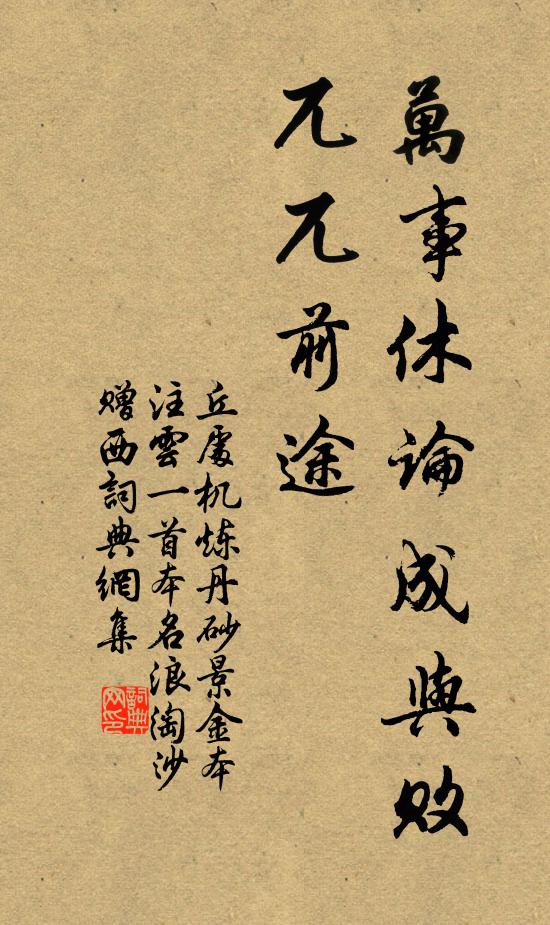 萬事休論成與敗
兀兀前途
丘處机炼丹砂景金本
注雲一首本名浪淘沙
赠西詞典網集
詞典網印